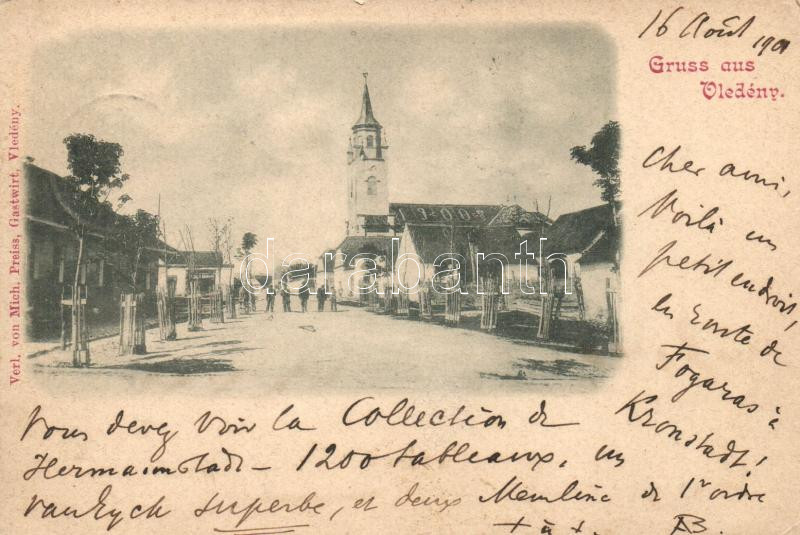 16 Août 1901
Gruss aus
Vledény.
Verl. von Mich. Preiss, Gastwirt, Vledény.
Cher ami,
Voilà un
petit endroit,
en route de
Fogaras à
Kronstadt!
darabanth.com
Vous devez voir la Collection de
Hermannstadt - 1200 tableaux, un
van Eyck superbe, et deux Memline de 1r ordre
AB.